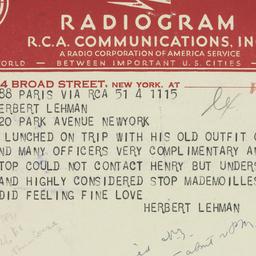 RADIOGRAM
R.C.A. COMMUNICATIONS, INC
A RADIO CORPORATION OF AMERICA SERVICE
WORLD — BETWEEN IMPORTANT U.S. CITIES —
4 BROAD STREET, NEW YORK. AT
88 PARIS VIA RCA 51 4 1115
HERBERT LEHMAN
20 PARK AVENUE NEWYORK
LUNCHED ON TRIP WITH HIS OLD OUTFIT
ND MANY OFFICERS VERY COMPLIMENTARY AN
STOP COULD NOT CONTACT HENRY BUT UNDERS
AND HIGHLY CONSIDERED STOP MADEMOILLES
DID FEELING FINE LOVE
HERBERT LEHMAN